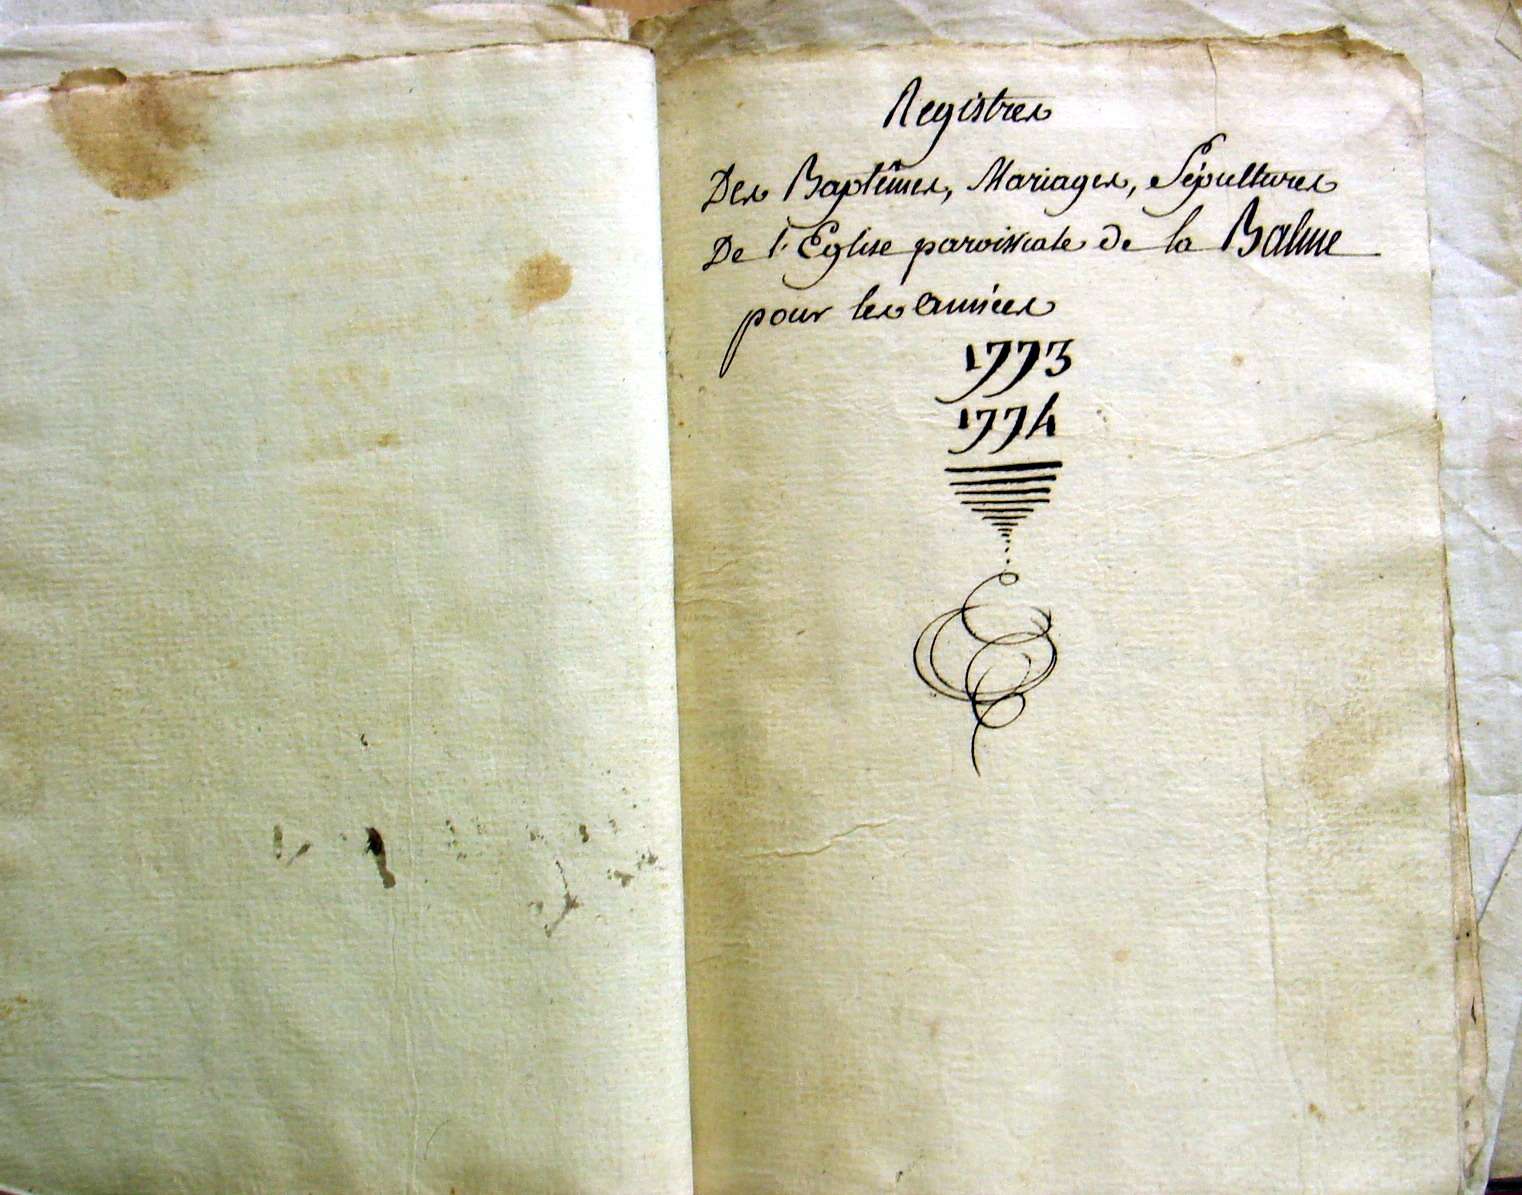 Registres
Des Baptêmes, Mariages, Sépultures
De l'Eglise paroissiale de la Balme
pour les années
1773
1774